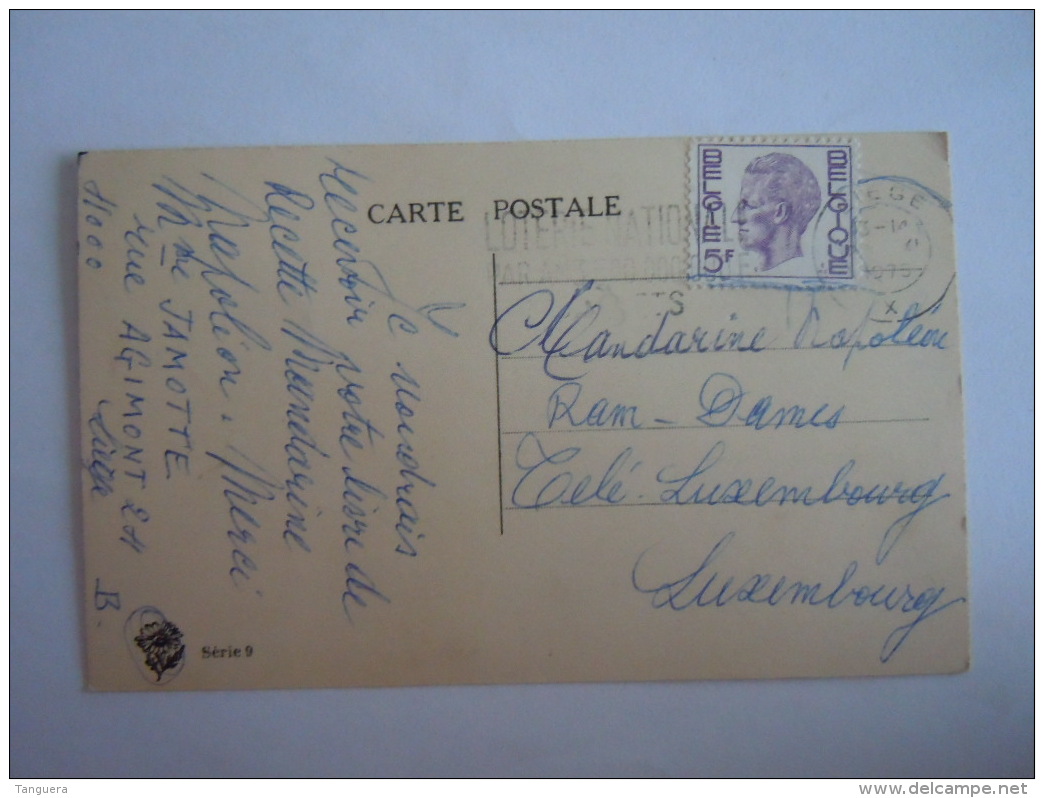 CARTE POSTALE
BELGIE 5F
BELGIQUE
LIEGE
13-
1975
X
LOTERIE NATIONALE
PAR AN
Je voudrais
recevoir votre livre de
Recette Mandarine
Napoléon. Merci
Mme JAMOTTE
rue AGIMONT 21
4000 Liège B.
Mandarine Napoléon
Ram - Dames
Télé-Luxembourg
Luxembourg
Série 9
Tanguera
delcampe.net